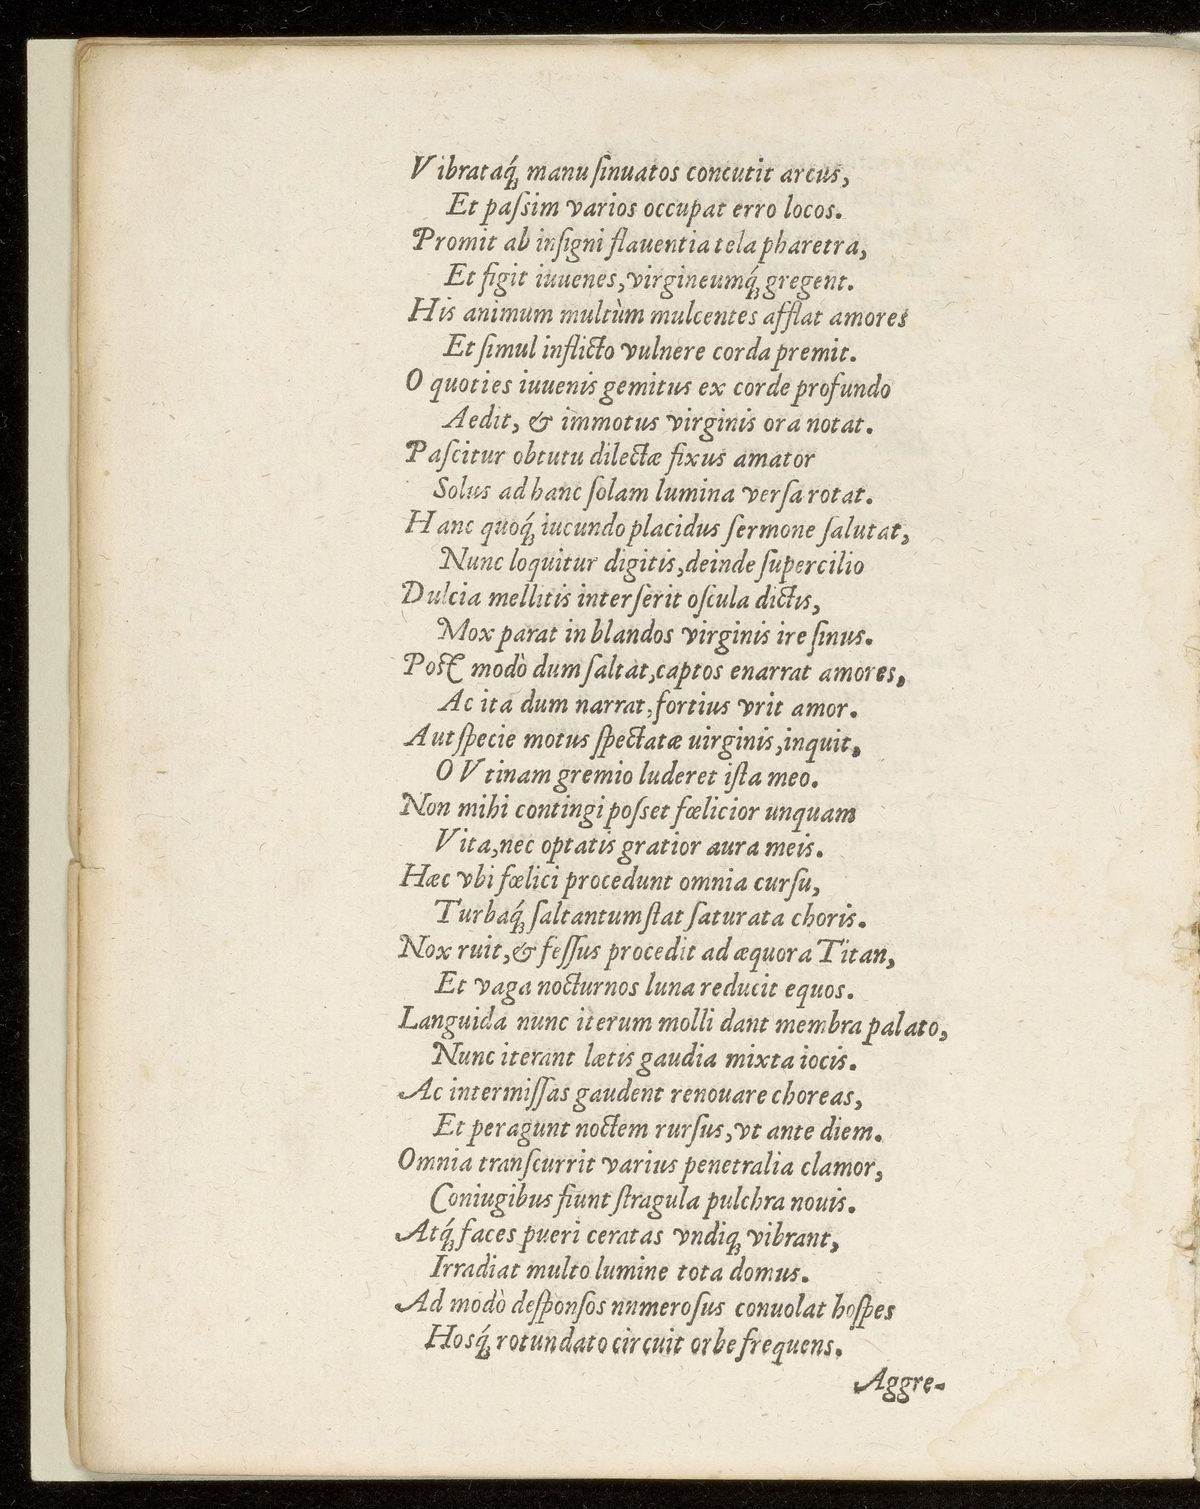 Vibrataq́ꝫ manu ſinuatos concutit arcus,
Et paſsim varios occupat erro locos.
Promit ab inſigni flauentia tela pharetra,
Et figit iuuenes, virgineumq́ꝫ gregent.
His animum multùm mulcentes afflat amores
Et ſimul inflicto vulnere corda premit.
O quoties iuuenis gemitus ex corde profundo
Aedit, & immotus virginis ora notat.
Paſcitur obtutu dilectæ fixus amator
Solus ad hanc ſolam lumina verſa rotat.
Hanc quoq́ꝫ iucundo placidus ſermone ſalutat,
Nunc loquitur digitis, deinde ſupercilio
Dulcia mellitis interſerit oſcula dictis,
Mox parat in blandos virginis ire ſinus.
Post modò dum ſaltat, captos enarrat amores,
Ac ita dum narrat, fortius vrit amor.
Aut ſpecie motus ſpectatæ uirginis, inquit,
O Vtinam gremio luderet iſta meo.
Non mihi contingi poſset fœlicior unquam
Vita, nec optatis gratior aura meis.
Hæc vbi fœlici procedunt omnia curſu,
Turbaq́ꝫ ſaltantum ſtat ſaturata choris.
Nox ruit, & feſſus procedit ad æquora Titan,
Et vaga nocturnos luna reducit equos.
Languida nunc iterum molli dant membra palato,
Nunc iterant lætis gaudia mixta iocis.
Ac intermiſſas gaudent renouare choreas,
Et peragunt noctem rurſus, vt ante diem.
Omnia tranſcurrit varius penetralia clamor,
Coniugibus fiunt ſtragula pulchra nouis.
Atq́ꝫ faces pueri ceratas vndiqꝫ vibrant,
Irradiat multo lumine tota domus.
Ad modò deſponſos numeroſus conuolat hoſpes
Hosq́ꝫ rotundato circuit orbe frequens.
Aggre-